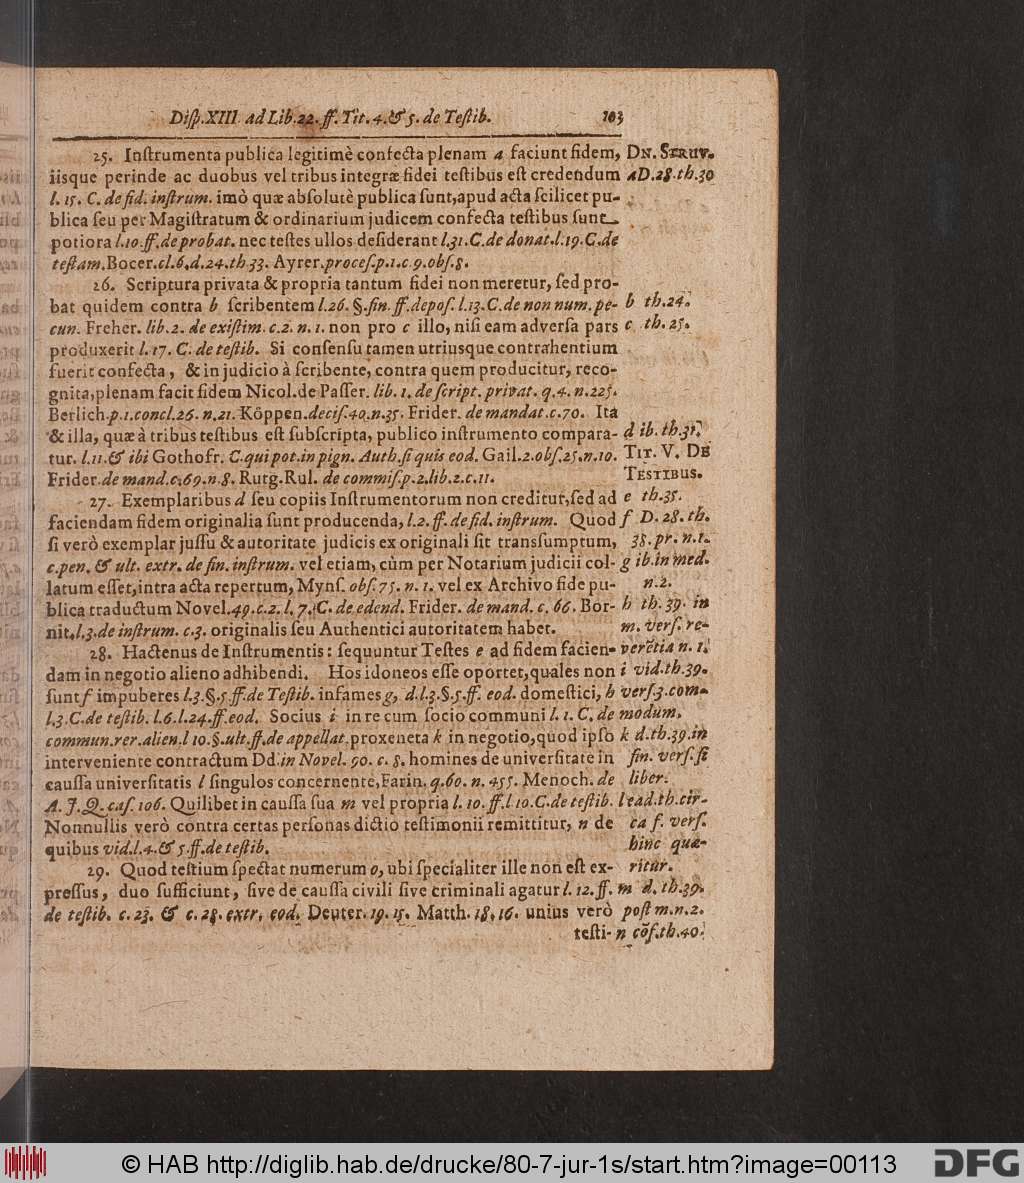 Diſp. XIII. ad Lib. 22. ff. Tit. 4. & 5. de Teſtib. 103
25. Inſtrumenta publica legitimè confecta plenam a faciunt fidem,
iisque perinde ac duobus vel tribus integræ fidei teſtibus eſt credendum
l. 15. C. de fid. inſtrum. imò quæ abſolutè publica ſunt, apud acta ſcilicet pu-
blica ſeu per Magiſtratum & ordinarium judicem confecta teſtibus ſunt
potiora l. 10. ff. de probat. nec teſtes ullos deſiderant l. 31. C. de donat. l. 19. C. de
teſtam. Bocer. cl. 6. d. 24. th. 33. Ayrer. proceſ. p. 1. c. 9. obſ. 8.
26. Scriptura privata & propria tantum fidei non meretur, ſed pro-
bat quidem contra b ſcribentem l. 26. §. fin. ff. depoſ. l. 13. C. de non num. pe-
cun. Freher. lib. 2. de exiſtim. c. 2. n. 1. non pro c illo, niſi eam adverſa pars
produxerit l. 17. C. de teſtib. Si conſenſu tamen utriusque contrahentium
fuerit confecta, & in judicio à ſcribente, contra quem producitur, reco-
gnita, plenam facit fidem Nicol. de Paſſer. lib. 1. de ſcript. privat. q. 4. n. 225.
Berlich. p. 1. concl. 26. n. 21. Köppen. deciſ. 40. n. 35. Frider. de mandat. c. 70. Ita
& illa, quæ à tribus teſtibus eſt ſubſcripta, publico inſtrumento compara-
tur. l. 11. & ibi Gothofr. C. qui pot. in pign. Auth. ſi quis eod. Gail. 2. obſ. 25. n. 10.
Frider. de mand. c. 69. n. 8. Rutg. Rul. de commiſ. p. 2. lib. 2. c. 11.
27. Exemplaribus d ſeu copiis Inſtrumentorum non creditur, ſed ad
faciendam fidem originalia ſunt producenda, l. 2. ff. de fid. inſtrum. Quod
ſi verò exemplar juſſu & autoritate judicis ex originali ſit transſumptum,
c. pen. & ult. extr. de fin. inſtrum. vel etiam, cùm per Notarium judicii col-
latum eſſet, intra acta repertum, Mynſ. obſ. 75. n. 1. vel ex Archivo fide pu-
blica traductum Novel. 49. c. 2. l. 7. C. de edend. Frider. de mand. c. 66. Bor-
nit. l. 3. de inſtrum. c. 3. originalis ſeu Authentici autoritatem habet.
28. Hactenus de Inſtrumentis: ſequuntur Teſtes e ad fidem facien-
dam in negotio alieno adhibendi. Hos idoneos eſſe oportet, quales non
ſunt f impuberes l. 3. §. 5. ff. de Teſtib. infames g, d. l. 3. §. 5. ff. eod. domeſtici, h
l. 3. C. de teſtib. l. 6. l. 24. ff. eod. Socius i in re cum ſocio communi l. 1. C. de
commun. rer. alien. l 10. §. ult. ff. de appellat. proxeneta k in negotio, quod ipſo
interveniente contractum Dd. in Novel. 90. c. 8. homines de univerſitate in
cauſſa univerſitatis l ſingulos concernente, Farin. q. 60. n. 455. Menoch. de
A. J. Q. caſ. 106. Quilibet in cauſſa ſua m vel propria l. 10. ff. l 10. C. de teſtib.
Nonnullis verò contra certas perſonas dictio teſtimonii remittitur, n de
quibus vid. l. 4. & 5. ff. de teſtib.
29. Quod teſtium ſpectat numerum o, ubi ſpecialiter ille non eſt ex-
preſſus, duo ſufficiunt, ſive de cauſſa civili ſive criminali agatur l. 12. ff.
de teſtib. c. 23. & c. 28. extr. eod. Deuter. 19. 15. Matth. 18. 16. unius verò
teſti-
Dn. Struv.
a D. 28. th. 30
b th. 24.
c th. 25.
d ib. th. 31.
Tit. V. De
Testibus.
e th. 35.
f D. 28. th.
38. pr. n. 1.
g ib. in med.
n. 2.
h th. 39. in
m. verſ. re-
verētia n. 1.
i vid. th. 39.
verſ. 3. com-
modum.
k d. th. 39. in
fin. verſ. ſi
liber.
l ead. th. cir-
ca f. verſ.
hinc quæ-
ritur.
m d. th. 39.
poſt m. n. 2.
n cõf. th. 40.
© HAB http://diglib.hab.de/drucke/80-7-jur-1s/start.htm?image=00113
DFG